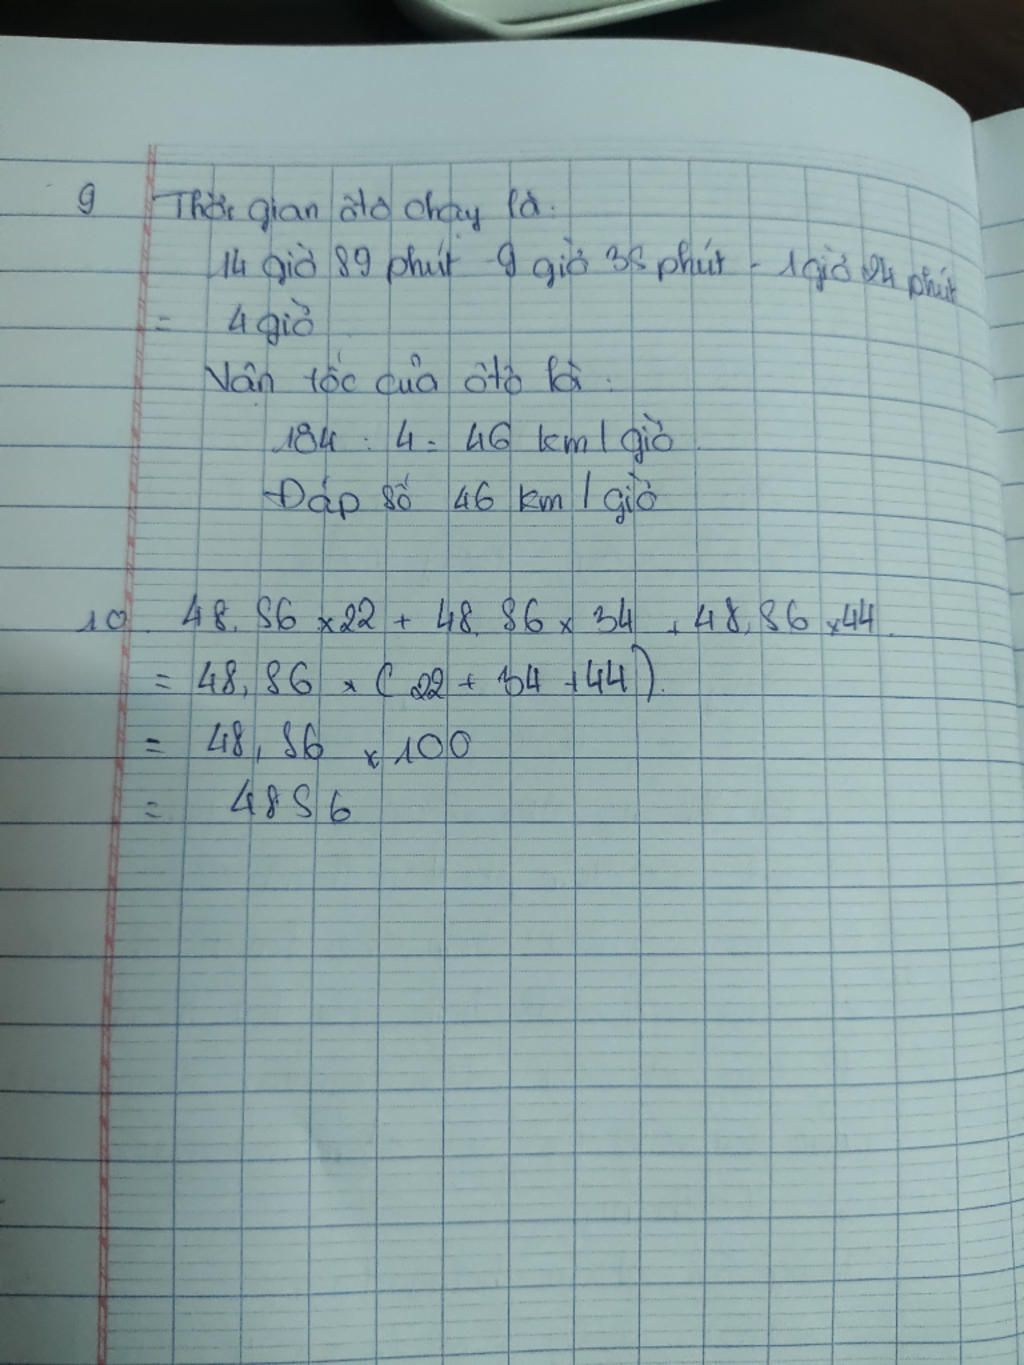 9 Thời gian ôtô chạy là.
14 giờ 59 phút - 9 giờ 35 phút - 1 giờ 24 phút
= 4 giờ
Vân tốc của ôtô là:
184 : 4 = 46 km / giờ.
Đáp số 46 km / giờ
10. 48,56 x 22 + 48,56 x 34 + 48,56 x 44.
= 48,56 x (22 + 34 + 44).
= 48,56 x 100
= 4856